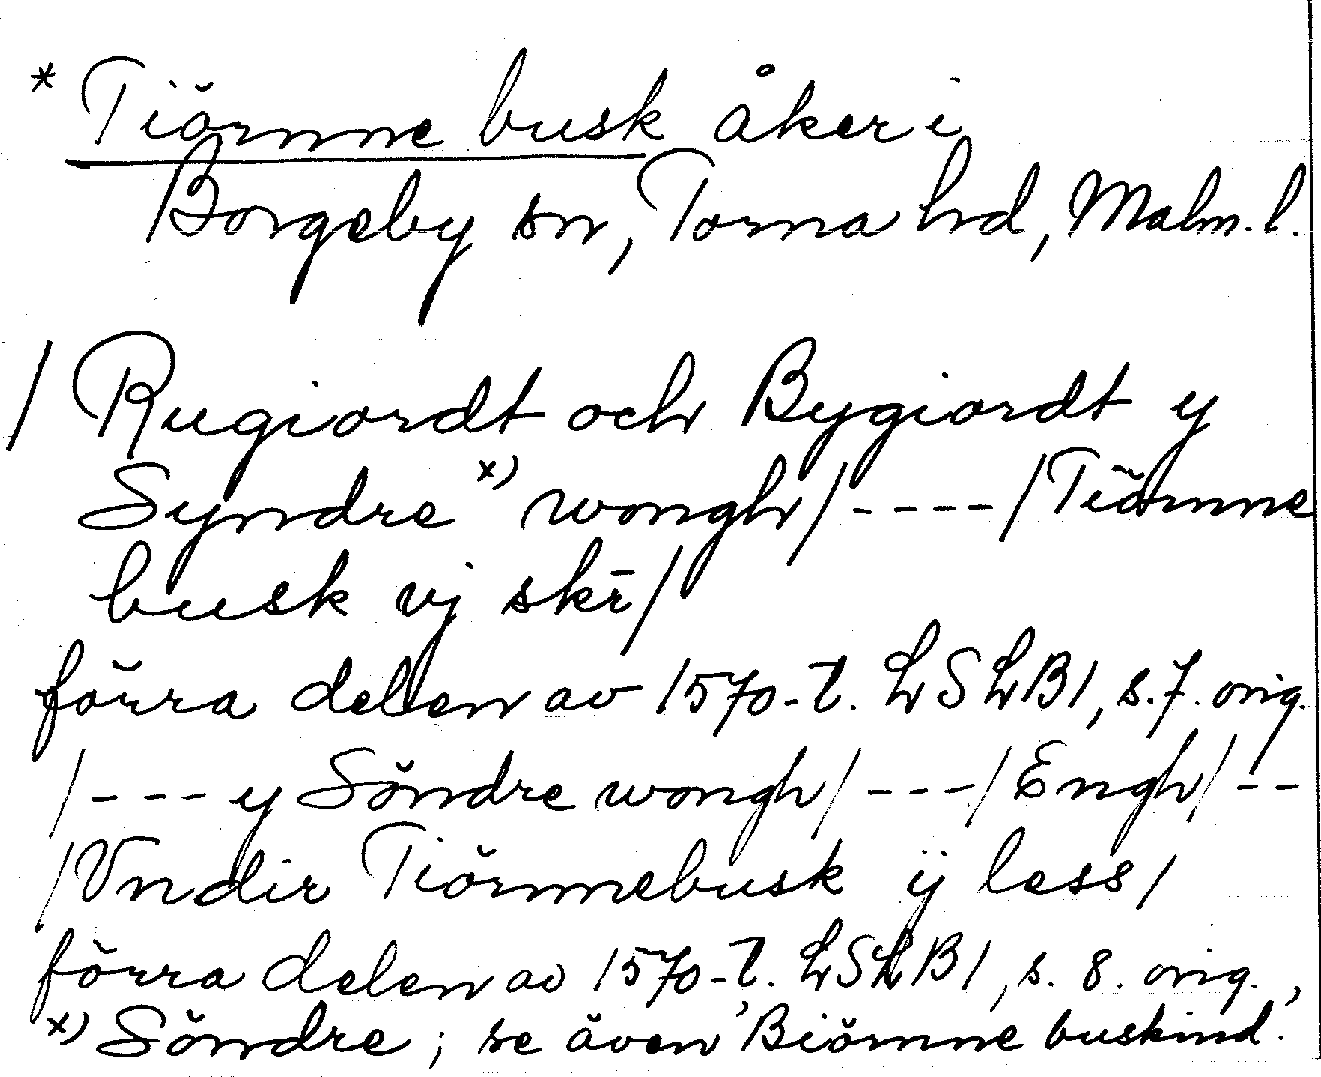 * Tiörnne busk åker i
Borgeby sn, Torna hd, Malm. l.
/ Rugiordt och Bygiordt y
Syndre x) wongh/ - - - - / Tiörnne
busk vj skr̄ /
förra delen av 1570-t. LSLB1, s. 7. orig.
/ - - - y Söndre wongh/ - - - / Engh/ - -
/ Vndir Tiörnnebusk ij less /
förra delen av 1570-t. LSLB1, s. 8. orig.
x) Söndre ; se även 'Biörnne buskind.'